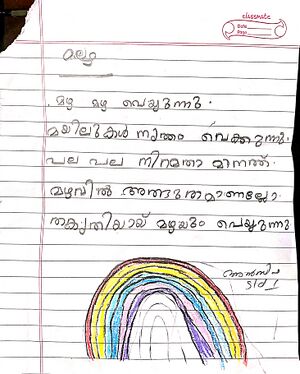 classmate
Date
Page
മഴ
മഴ മഴ പെയ്യുന്നു.
മയിലുകൾ നൃത്തം വെക്കുന്നു.
പല പല നിറമതാ മാനത്ത്
മഴവിൽ അത്ഭുതമാണല്ലോ.
തകൃതിയായ് മഴയും പെയ്യുന്നു
STD 1